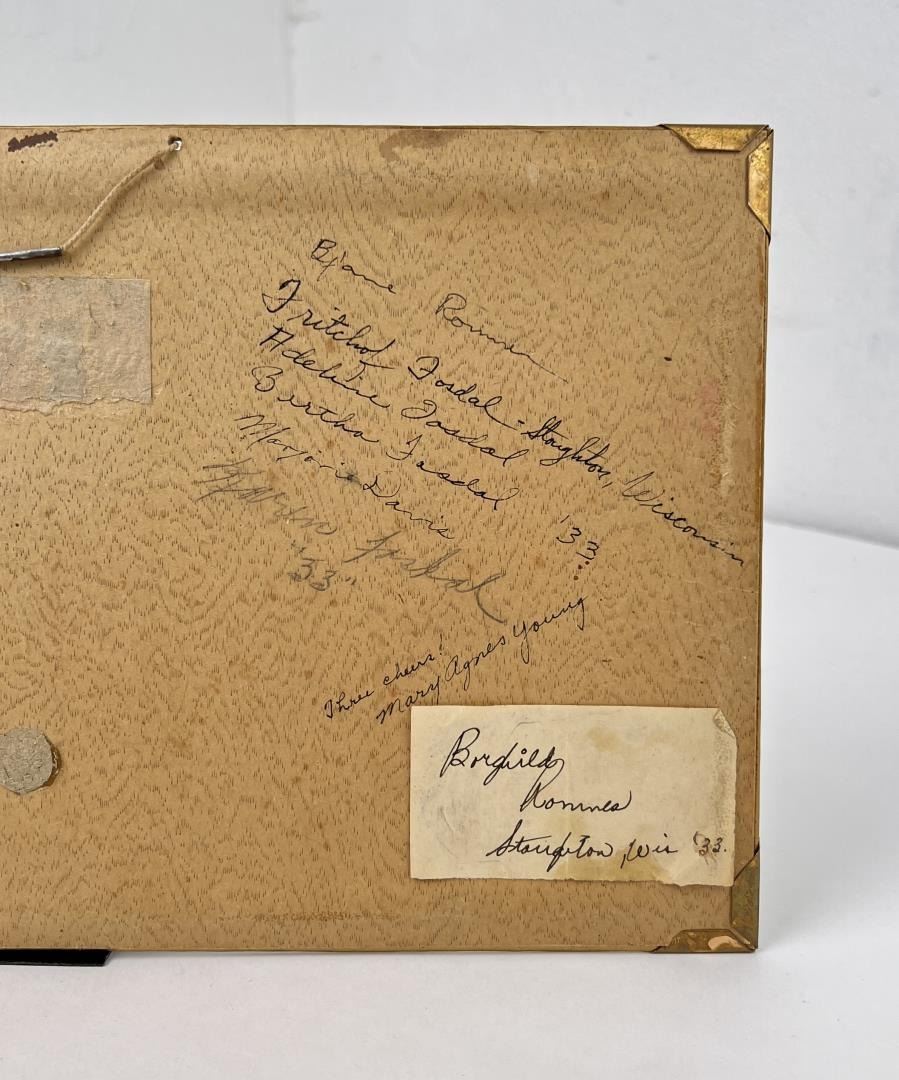 Bjarne Romnes
Fritchof Fosdal - Stoughton, Wisconsin
Adeline Fosdal
Bertha Fosdal
Marjorie Davis '33
Fosdal
"33"
Three cheers!
Mary Agnes Young
Borghild
Romnes
Stoughton, Wis '33.